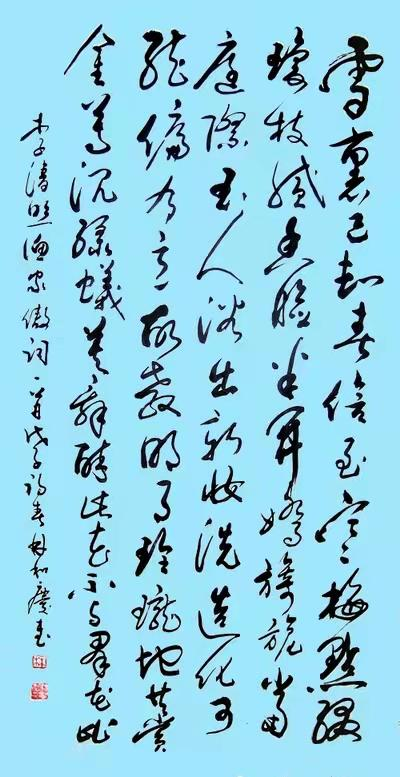 雪裏已知春信至寒梅點綴
瓊枝膩香臉半開嬌旖旎當
庭際玉人浴出新妝洗造化可
能偏有意故教明月玲瓏地共賞
金尊沉綠蟻莫辭醉此花不与群花比
李清照漁家傲詞一首戊子初春和慶書